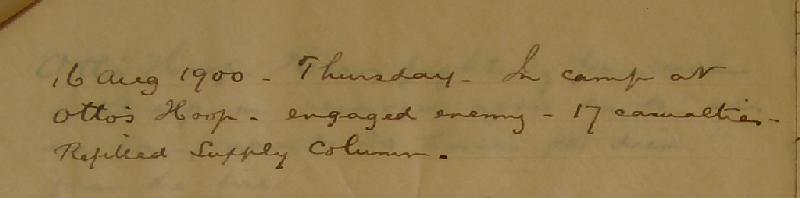 16 Aug 1900 - Thursday - In camp at
Otto's Hoop - engaged enemy - 17 casualties -
Refilled Supply Column.